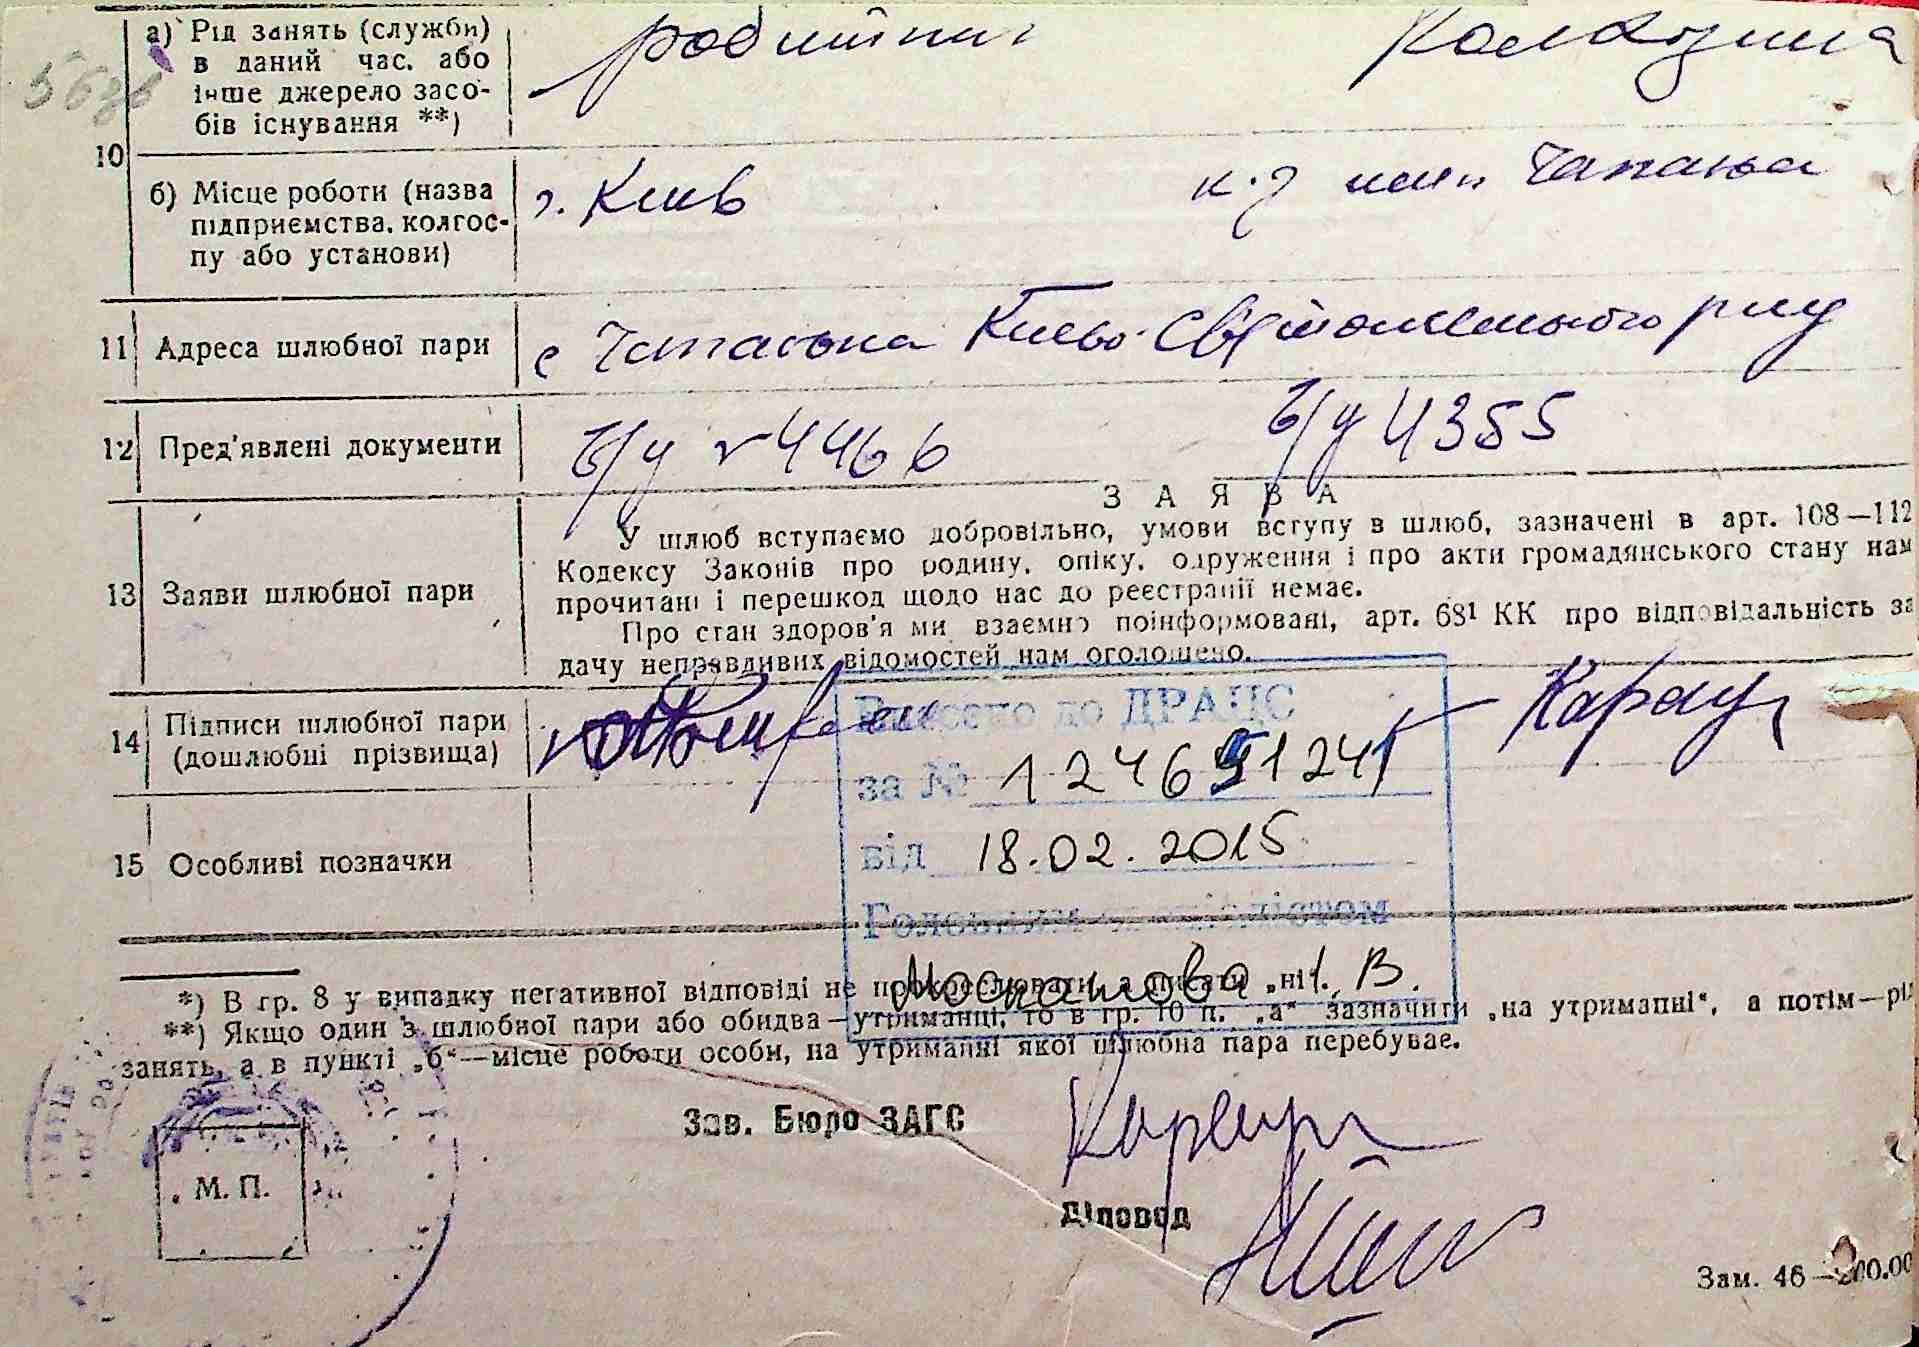 а) Рід занять (служби) в даний час, або інше джерело засобів існування **) робитник Колгозниця
10
б) Місце роботи (назва підприємства, колгоспу або установи) г. Київ
11 Адреса шлюбної пари с Чапаєвка Києво-Святошинського р-ну
12 Пред'явлені документи б/у № 4466 б/у 4355
ЗАЯВА
13 Заяви шлюбної пари
У шлюб вступаємо добровільно, умови вступу в шлюб, зазначені в арт. 108—112
Кодексу Законів про родину, опіку, одруження і про акти громадянського стану нам
прочитані і перешкод щодо нас до реєстрації немає.
Про стан здоров'я ми взаємно поінформовані, арт. 68¹ КК про відповідальність за
дачу неправдивих відомостей нам оголошено.
14 Підписи шлюбної пари
(дошлюбні прізвища)
Внесено до ДРАЦС
за № 124691241
від 18.02.2015
Головним спеціалістом
15 Особливі позначки
*) В гр. 8 у випадку негативної відповіді не прокреслювати, а писати „ні".
**) Якщо один з шлюбної пари або обидва—утриманці, то в гр. 10 п. „а" зазначити „на утриманні", а потім—рід
занять, а в пункті „б"—місце роботи особи, на утриманні якої шлюбна пара перебуває.
Зав. Бюро ЗАГС
М. П.
Діловод
Зам. 46